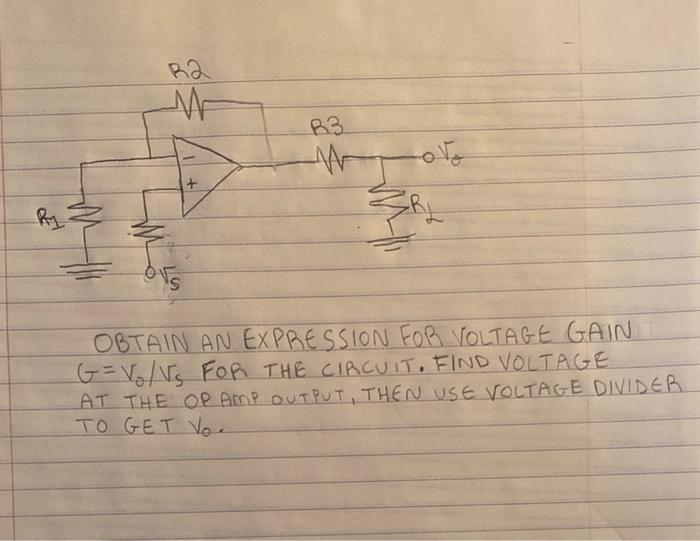 R2
R3
Vo
-
+
R1
RL
Vs
OBTAIN AN EXPRESSION FOR VOLTAGE GAIN
G=Vo/Vs FOR THE CIRCUIT. FIND VOLTAGE
AT THE OP AMP OUTPUT, THEN USE VOLTAGE DIVIDER
TO GET Vo.